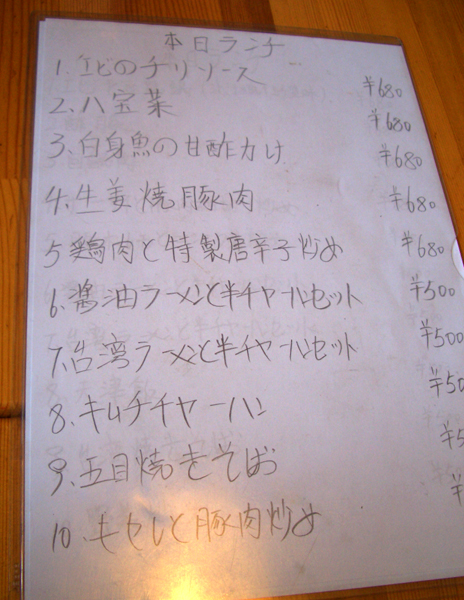 本日ランチ
1. エビのチリソース ¥680
2. 八宝菜 ¥680
3. 白身魚の甘酢カけ ¥680
4. 生姜焼豚肉 ¥680
5 鶏肉と特製唐辛子炒め ¥680
6. 醤油ラーメンと半チャーハンセット ¥500
7. 台湾ラーメンと半チャーハンセット ¥500
8. キムチチャーハン ¥50
9. 五目焼きそば ¥5
10. キャベと豚肉炒め ¥